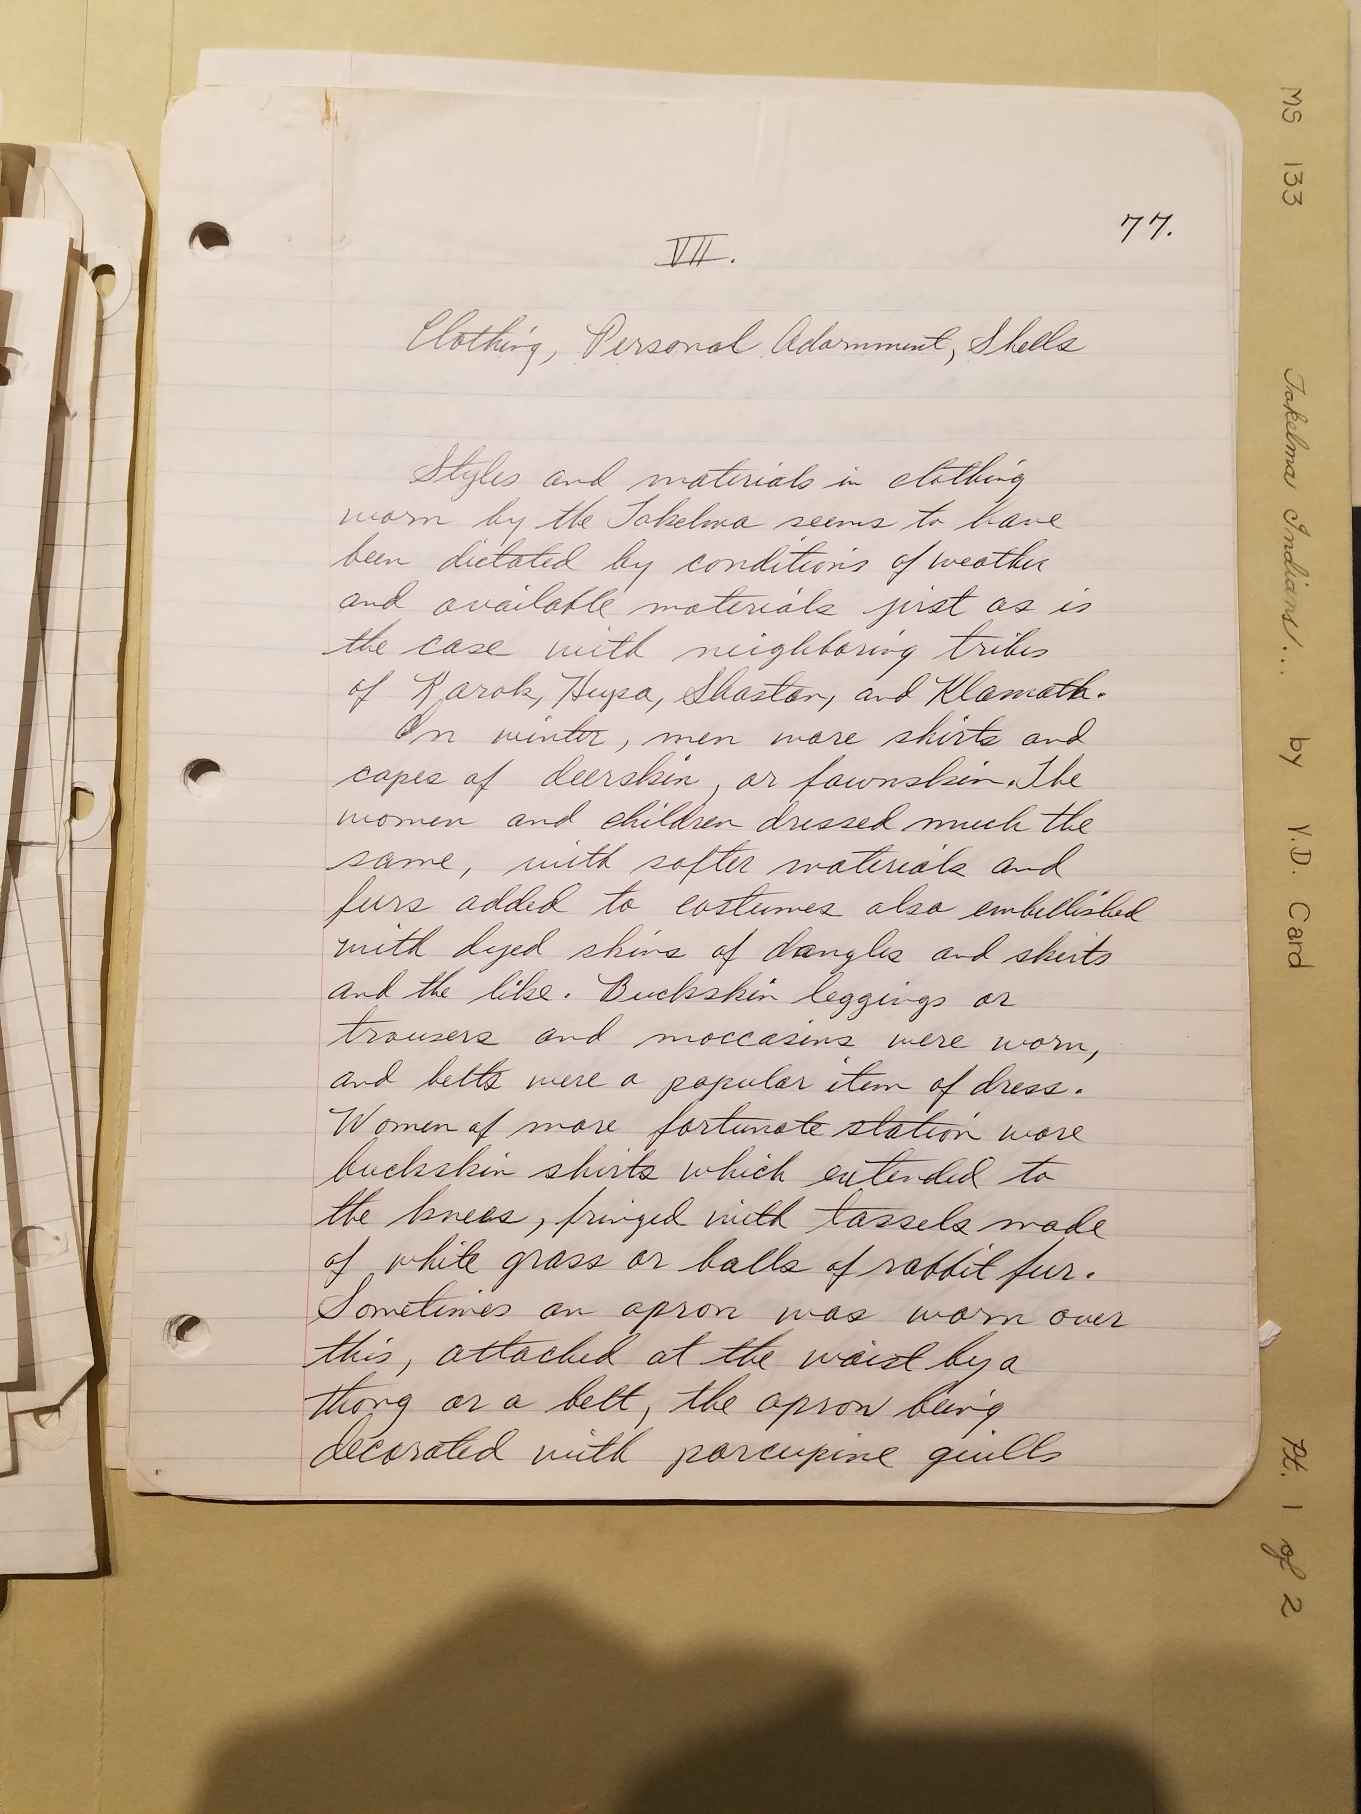 77.
VII.
Clothing, Personal Adornment, Shells
Styles and materials in clothing
worn by the Takelma seems to have
been dictated by conditions of weather
and available materials just as is
the case with neighboring tribes
of Karok, Hupa, Shastan, and Klamath.
In winter, men wore shirts and
capes of deerskin, or fawnskin. The
women and children dressed much the
same, with softer materials and
furs added to costumes also embellished
with dyed skins of dangles and skirts
and the like. Buckskin leggings or
trousers and moccasins were worn,
and belts were a popular item of dress.
Women of more fortunate station wore
buckskin shirts which extended to
the knees, fringed with tassels made
of white grass or balls of rabbit fur.
Sometimes an apron was worn over
this, attached at the waist by a
thong or a belt, the apron being
decorated with porcupine quills
MS 133 Takelma Indians... by V.D. Card pt. 1 of 2